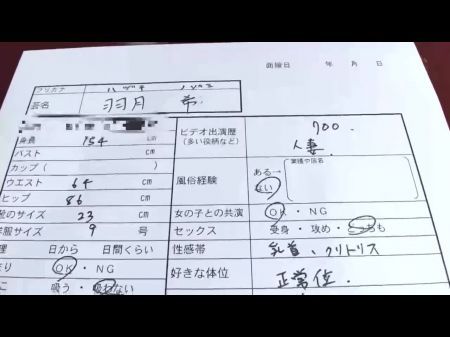 面接日 年 月 日
フリガナ ハヅキ ノゾミ
芸名 羽月 希
身長 154 cm
バスト cm
カップ ( )
ウエスト 64 cm
ヒップ 86 cm
靴のサイズ 23 cm
洋服サイズ 9 号
理 日から 日間くらい
OK ・ NG
吸う ・ 吸わない
ビデオ出演歴 700.
(多い役柄など) 人妻
風俗経験 ある→ (業種や店名)
ない
女の子との共演 OK ・ NG
セックス 受身 ・ 攻め ・ どっちも
性感帯 乳首、クリトリス
好きな体位 正常位.